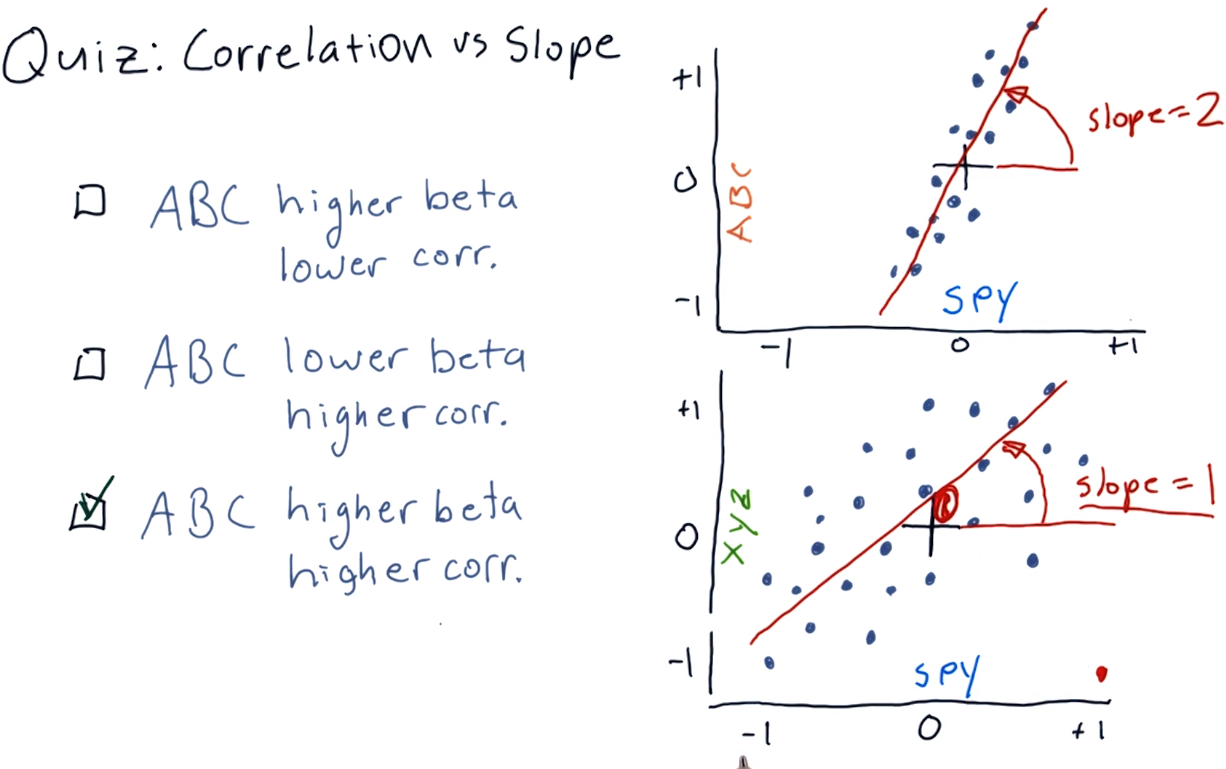 Quiz: Correlation vs Slope
ABC higher beta
lower corr.
ABC lower beta
higher corr.
ABC higher beta
higher corr.
+1
0
-1
ABC
slope=2
SPY
-1
0
+1
+1
0
-1
XYZ
slope = 1
SPY
-1
0
+1